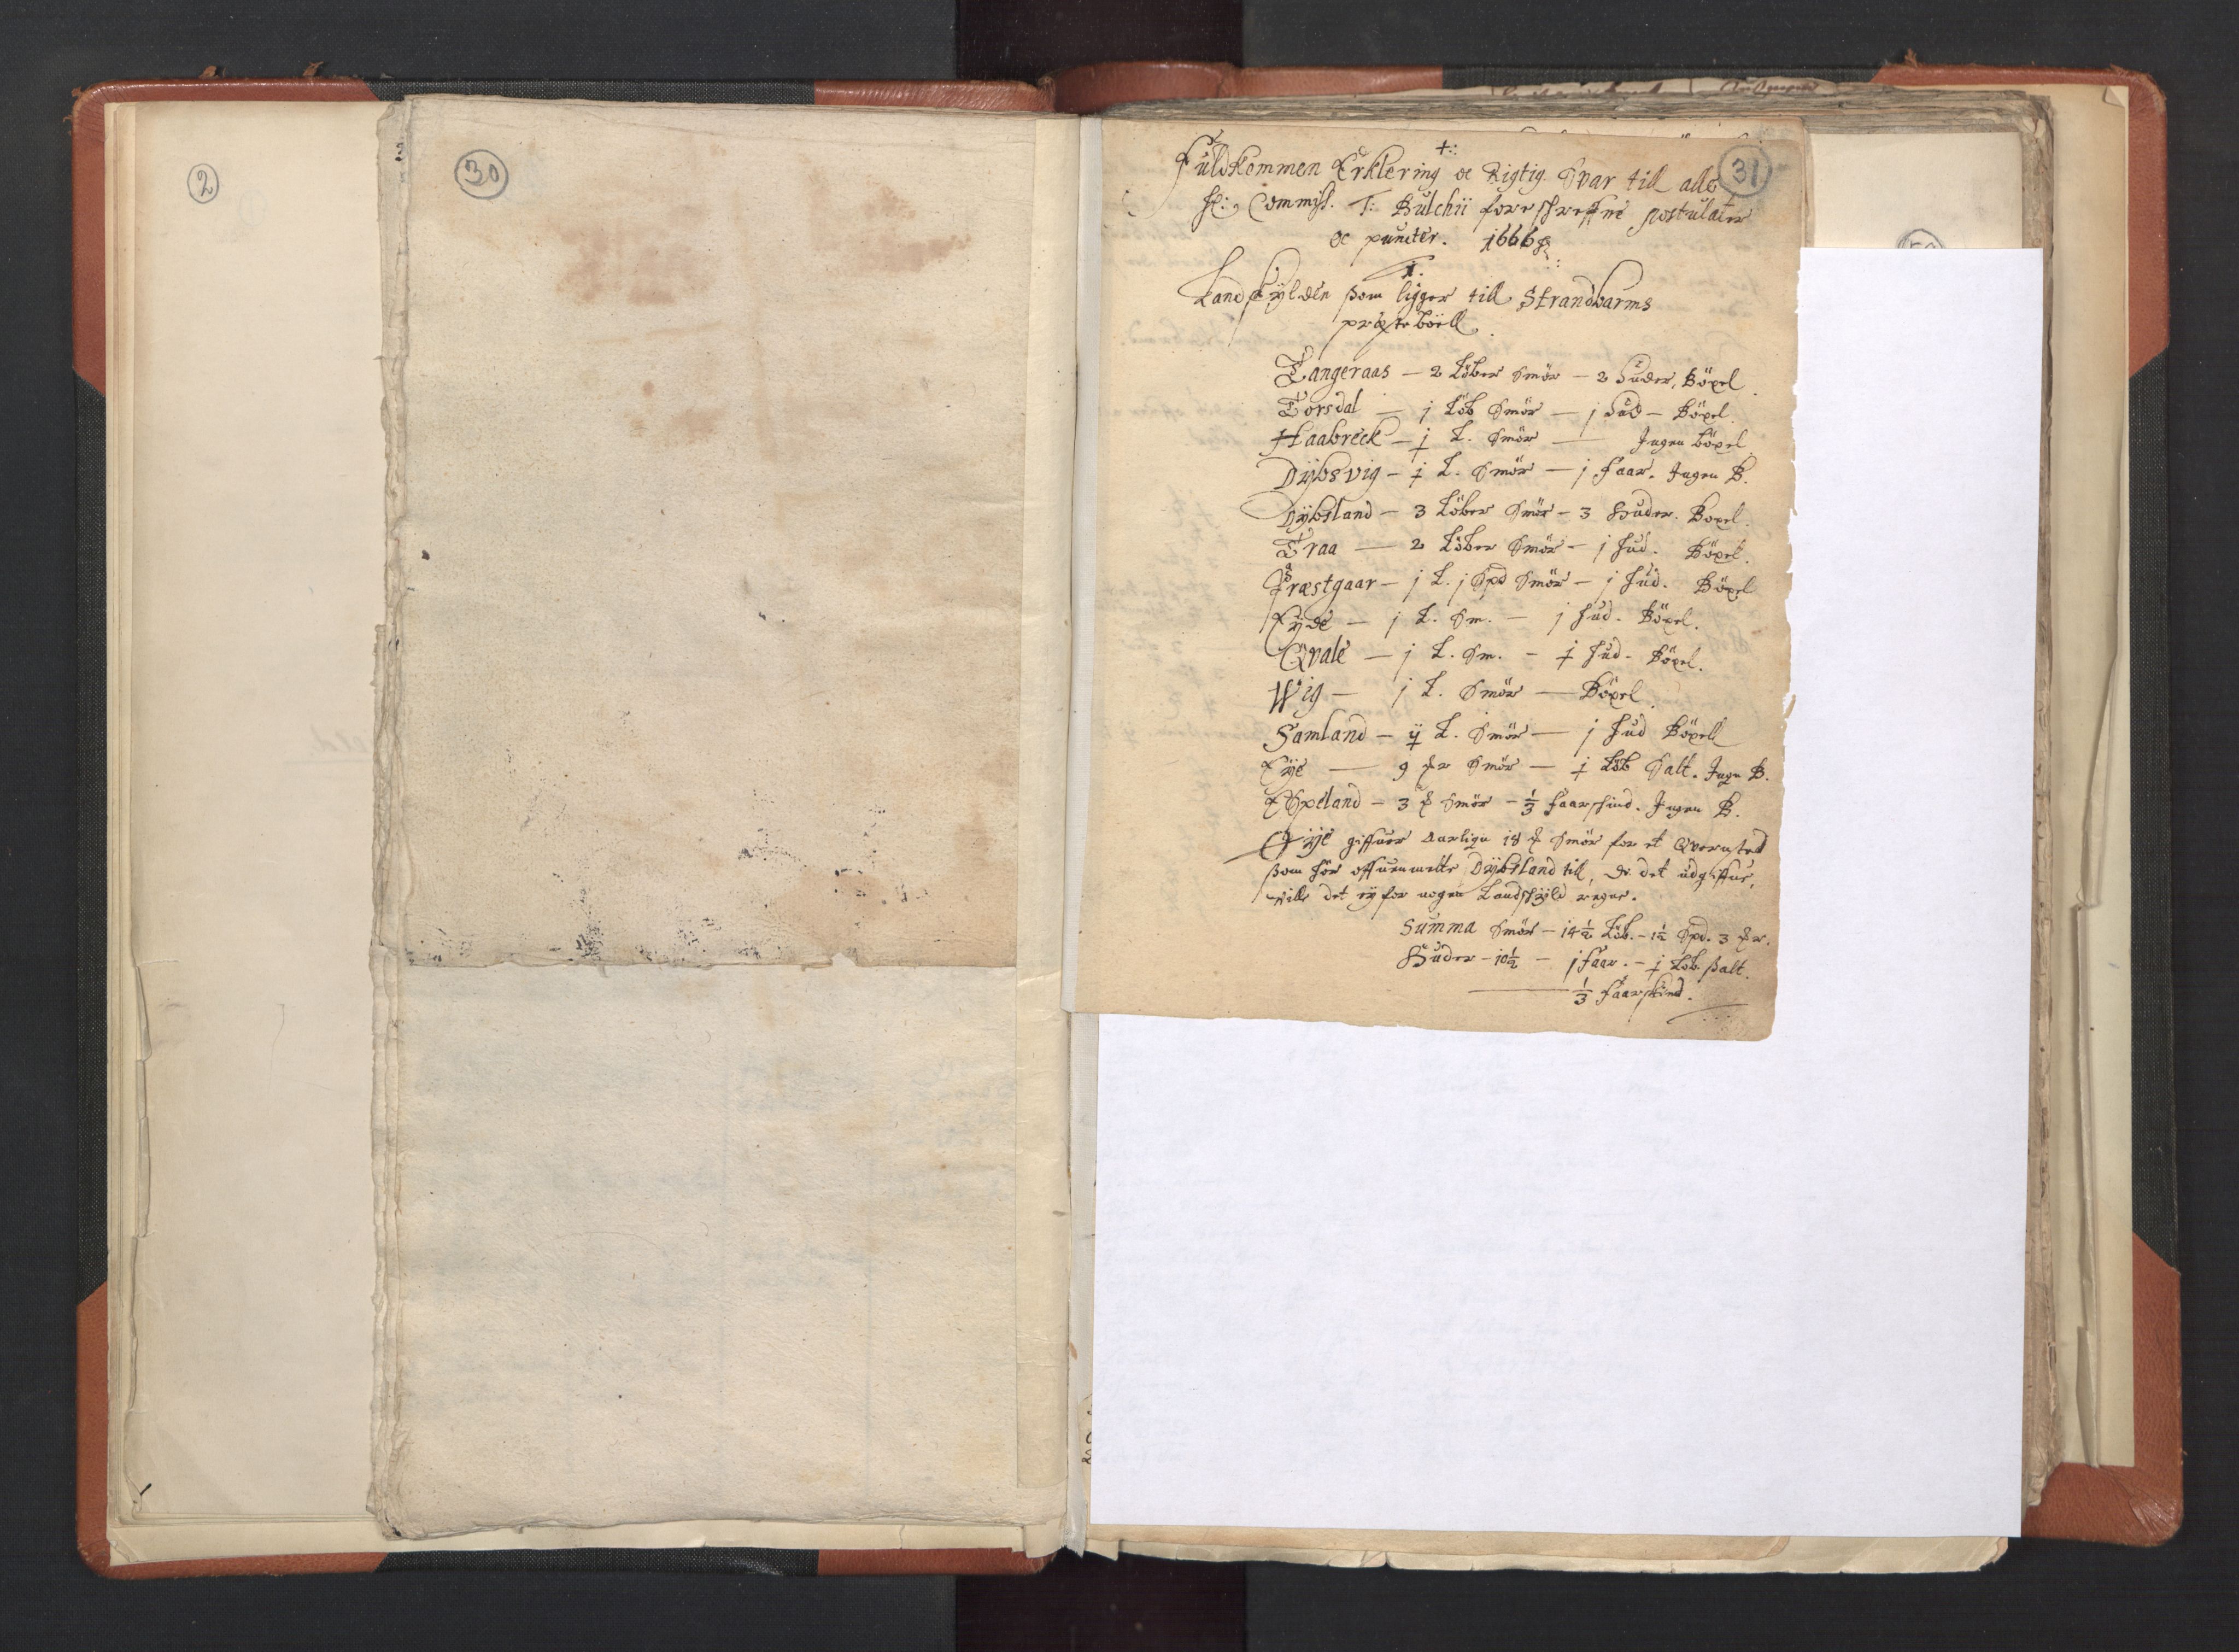 2
30
31
+:
Fuldkommen Erklering oc Rigtig Svar till alle
Hr: Commiss. T: Bulchii foreskrefne postulater
oc puncter. 1666
1.
Landskylden som ligger till Strandbarms
præsteböell.
Tangeraas — 2 Löber Smör — 2 Huder, Böxel
Torsdal — j Löb Smör — j Hud — Böxel
Haabreck — ɉ L. Smör — Ingen böxel
Dybsvig — ɉ L. Smör — j Faar. Ingen B.
Dybsland — 3 Löber Smör — 3 Huder. Boxel.
Traa — 2 Löber Smör — j Hud. Böxel.
Præstgaar — j L. j Spd Smör — j Hud. Böxel
Eyde — j L. Sm. — j Hud. Böxel.
Qvale — j L. Sm. — ɉ Hud. Böxel.
Wig — j L. Smör — Böxel.
Samland — L. Smör — j Hud Böxell
Eye — 9 Smör — ɉ Löb Salt. Ingn B.
Espeland — 3 Smör — 1/3 Faarskind. Ingen B.
Öye giffuer aarligen 18 Smör for et Qvernsted
som hör offuenmelte Dybsland till, det udgiffue,
ville det ey for nogen Landskyld regne.
Summa Smör — 14 1/2 Löb. — 1 1/2 Spd. 3
Huder — 10 1/2 — j Faar. — ɉ Löb Salt.
1/3 Faarskind.